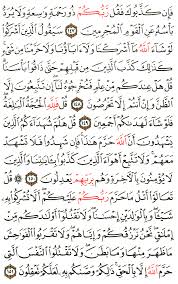 فَإِن كَذَّبُوكَ فَقُل رَّبُّكُمْ ذُو رَحْمَةٍ وَٰسِعَةٍ وَلَا يُرَدُّ
بَأْسُهُۥ عَنِ ٱلْقَوْمِ ٱلْمُجْرِمِينَ ١٤٧ سَيَقُولُ ٱلَّذِينَ أَشْرَكُوا۟
لَوْ شَآءَ ٱللَّهُ مَآ أَشْرَكْنَا وَلَآ ءَابَآؤُنَا وَلَا حَرَّمْنَا مِن شَىْءٍ
كَذَٰلِكَ كَذَّبَ ٱلَّذِينَ مِن قَبْلِهِمْ حَتَّىٰ ذَاقُوا۟ بَأْسَنَا
قُلْ هَلْ عِندَكُم مِّنْ عِلْمٍ فَتُخْرِجُوهُ لَنَآ إِن تَتَّبِعُونَ إِلَّا
ٱلظَّنَّ وَإِنْ أَنتُمْ إِلَّا تَخْرُصُونَ ١٤٨ قُلْ فَلِلَّهِ ٱلْحُجَّةُ ٱلْبَٰلِغَةُ
فَلَوْ شَآءَ لَهَدَىٰكُمْ أَجْمَعِينَ ١٤٩ قُلْ هَلُمَّ شُهَدَآءَكُمُ ٱلَّذِينَ
يَشْهَدُونَ أَنَّ ٱللَّهَ حَرَّمَ هَٰذَا فَإِن شَهِدُوا۟ فَلَا تَشْهَدْ
مَعَهُمْ وَلَا تَتَّبِعْ أَهْوَآءَ ٱلَّذِينَ كَذَّبُوا۟ بِـَٔايَٰتِنَا وَٱلَّذِينَ
لَا يُؤْمِنُونَ بِٱلْـَٔاخِرَةِ وَهُم بِرَبِّهِمْ يَعْدِلُونَ ١٥٠ قُلْ
تَعَالَوْا۟ أَتْلُ مَا حَرَّمَ رَبُّكُمْ عَلَيْكُمْ أَلَّا تُشْرِكُوا۟ بِهِۦ
شَيْـًٔا وَبِٱلْوَٰلِدَيْنِ إِحْسَٰنًا وَلَا تَقْتُلُوٓا۟ أَوْلَٰدَكُم مِّنْ
إِمْلَٰقٍ نَّحْنُ نَرْزُقُكُمْ وَإِيَّاهُمْ وَلَا تَقْرَبُوا۟ ٱلْفَوَٰحِشَ مَا
ظَهَرَ مِنْهَا وَمَا بَطَنَ وَلَا تَقْتُلُوا۟ ٱلنَّفْسَ ٱلَّتِى
حَرَّمَ ٱللَّهُ إِلَّا بِٱلْحَقِّ ذَٰلِكُمْ وَصَّىٰكُم بِهِۦ لَعَلَّكُمْ تَعْقِلُونَ ١٥١